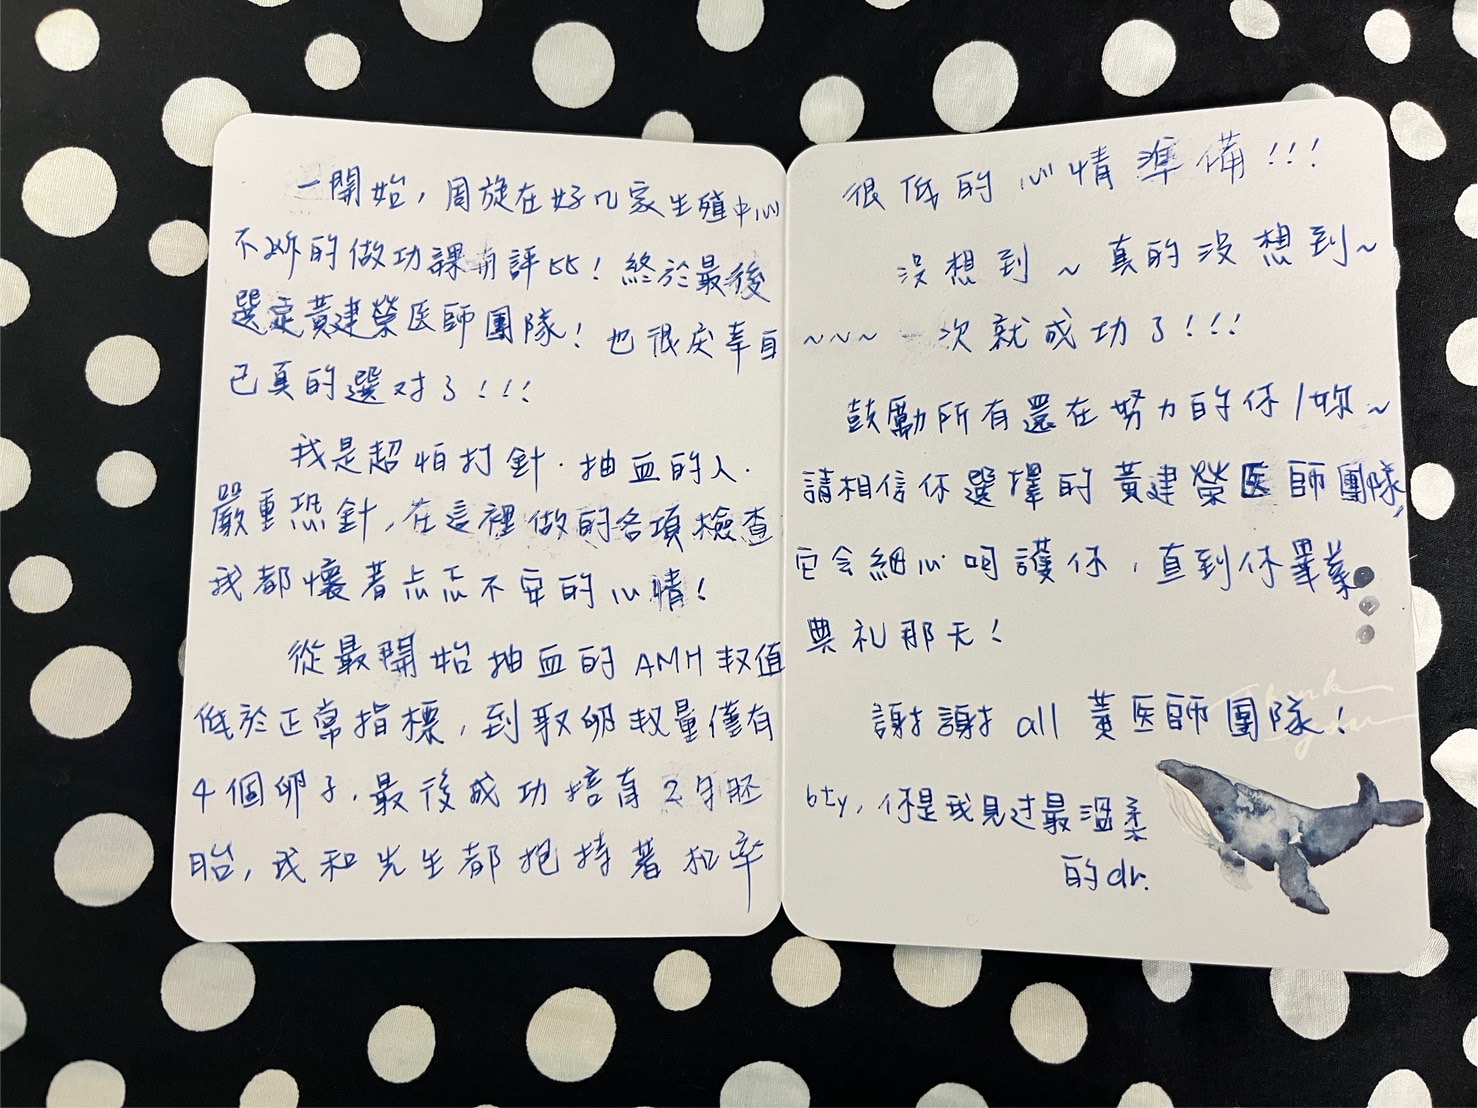 一開始，周旋在好几家生殖中心
不斷的做功課有評比！終於最後
選定黃建榮医師團隊！也很庆幸自
己真的選对了！！！
我是超怕打針．抽血的人．
嚴重恐針，在這裡做的各項檢查
我都懷著忐忑不安的心情！
從最開始抽血的AMH数值
低於正常指標，到取卵数量僅有
4個卵子．最後成功培育2隻胚
胎，我和先生都抱持著机率
很低的心情準備！！！
沒想到～真的沒想到～
～～～一次就成功了！！！
鼓勵所有還在努力的你/妳～
請相信你選擇的黃建榮医師團隊，
它会細心呵護你，直到你畢業
典礼那天！
謝謝all黃医師團隊！
Thank
you
bty，你是我見过最溫柔
的dr.